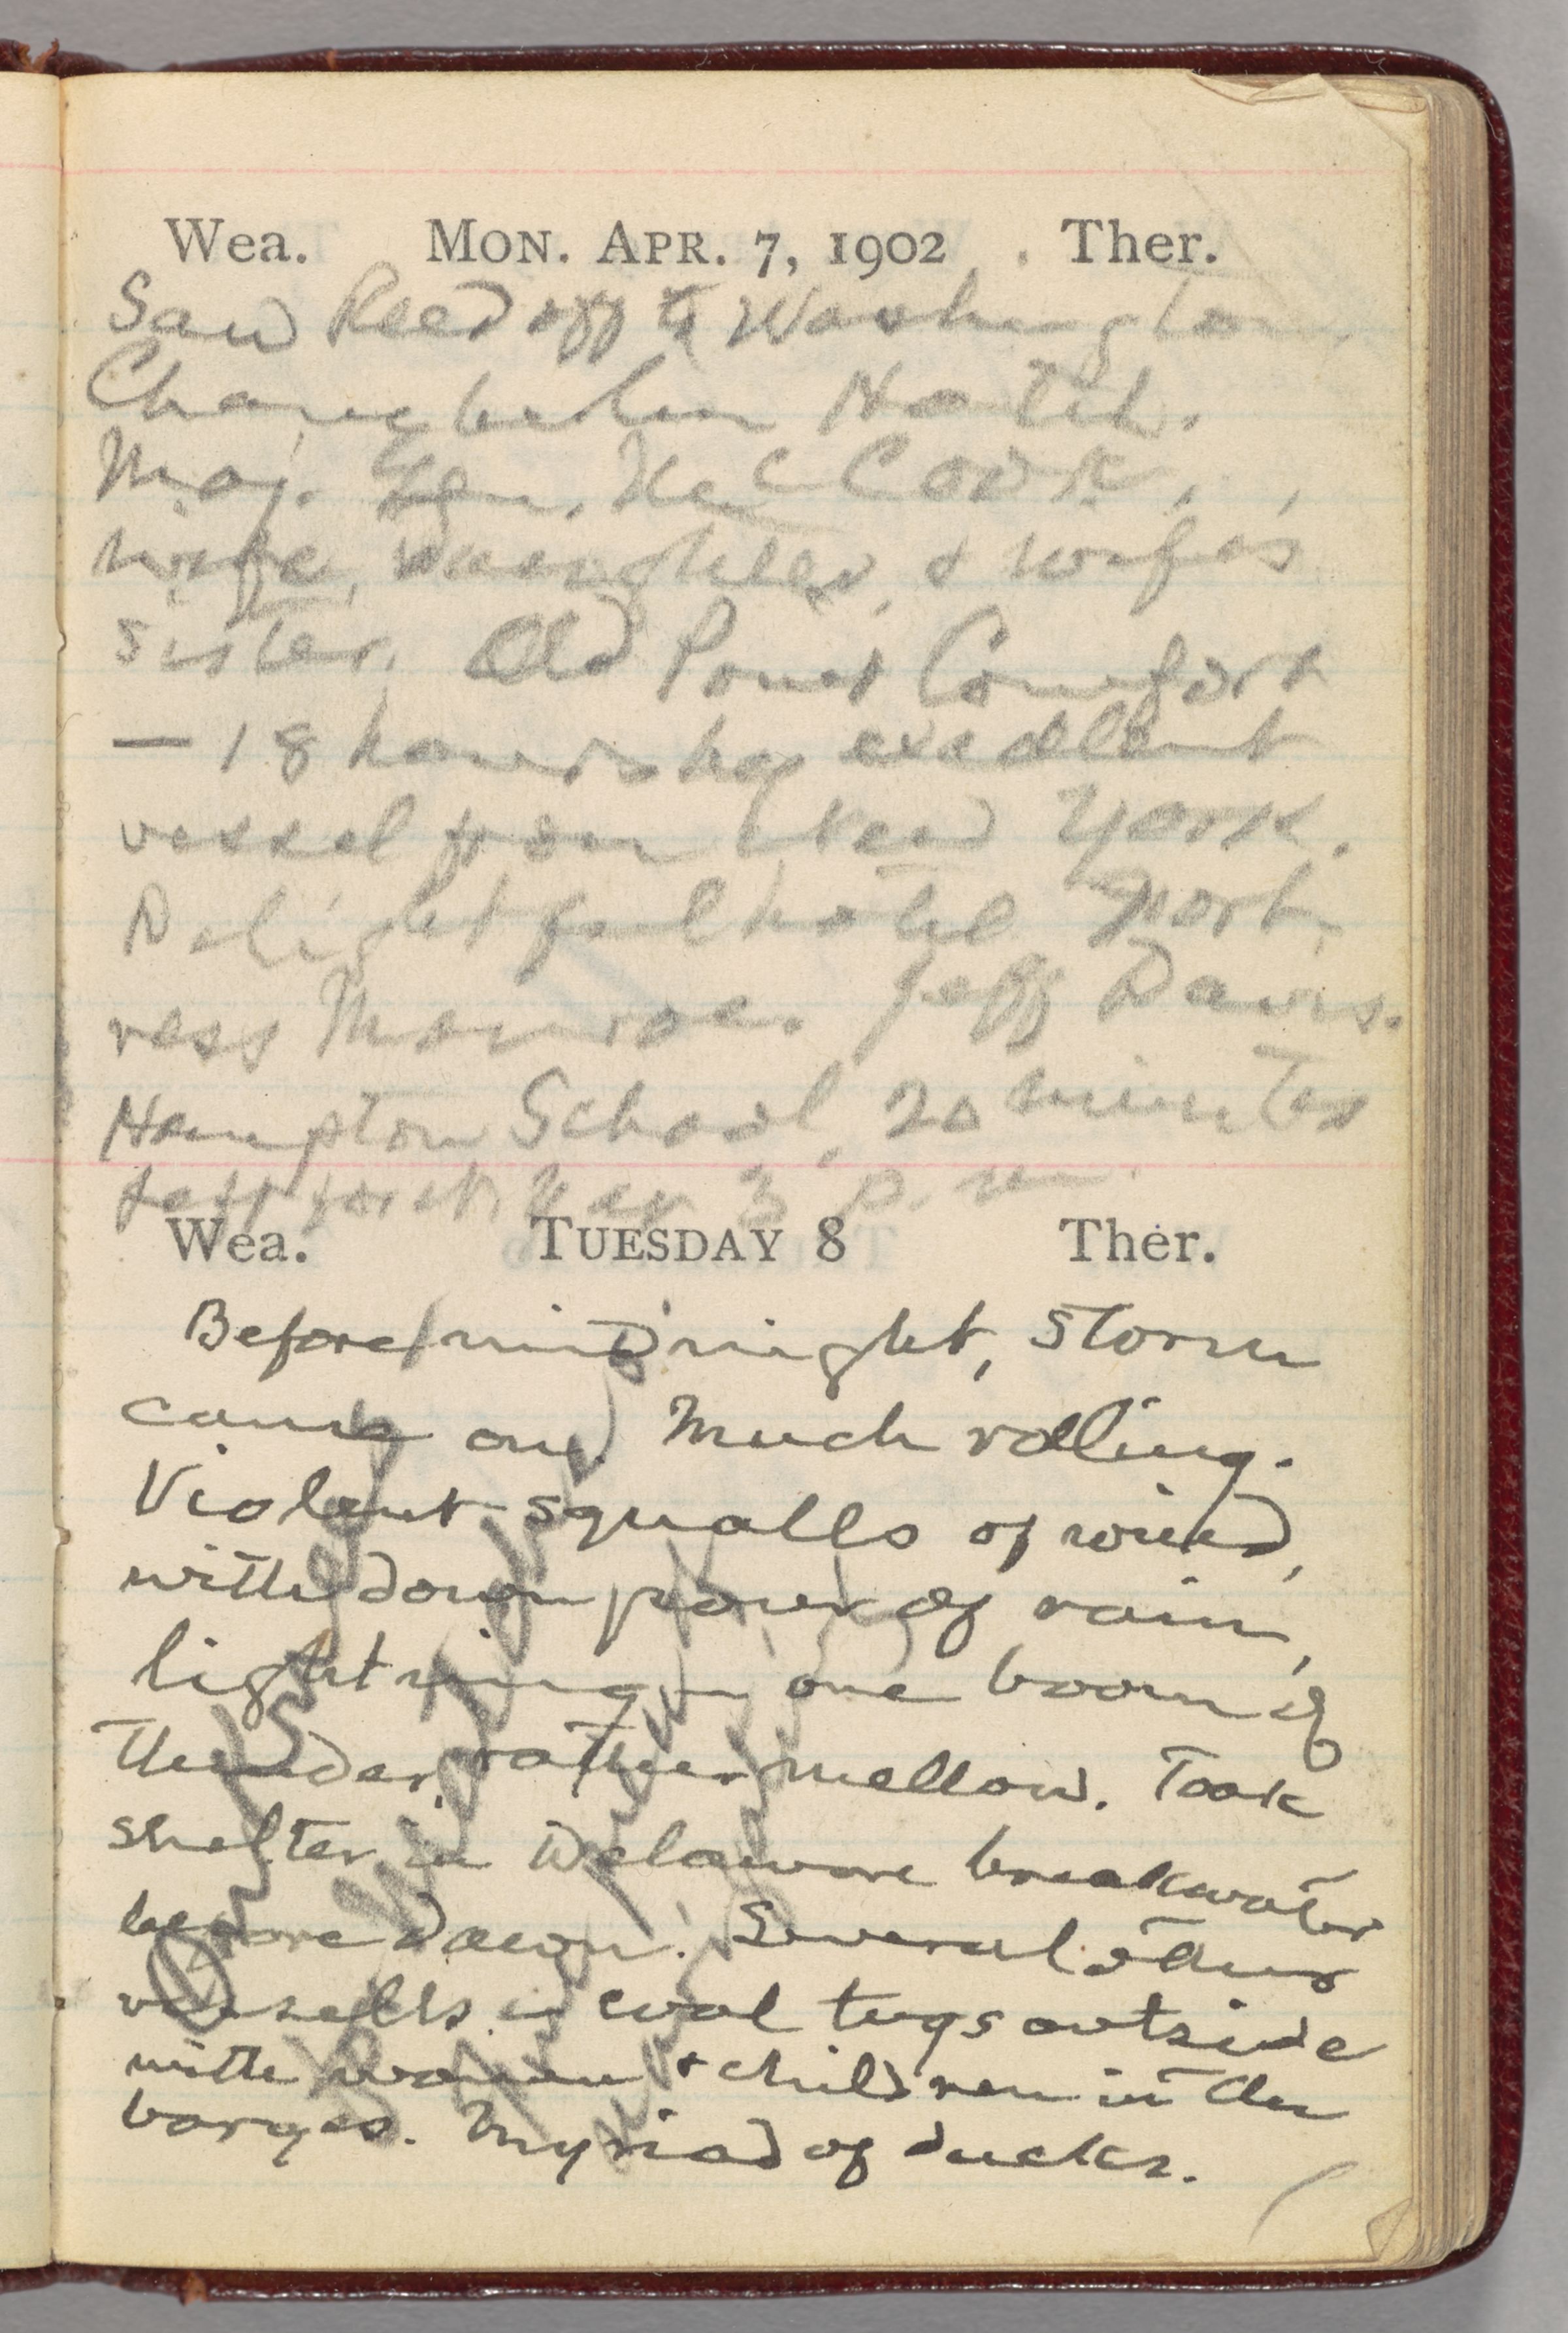 Wea. MON. APR. 7, 1902 Ther.
Saw Reed off to Washington.
Chamberlin Hotel.
Maj. Gen. McCook,
wife, daughter, & wife's
sister. Old Point Comfort
— 18 hours by excellent
vessel from New York.
Delightful hotel Fort-
ress Monroe. Jeff Davis.
Hampton School, 20 minutes
Left for N. Y. 3 p.m.
Wea. TUESDAY 8 Ther.
Before midnight, storm
came on. Much rolling.
Violent squalls of wind,
with down pour of rain,
lightning — one boom of
thunder, rather mellow. Took
shelter in Delaware breakwater
before dawn. Several other
vessells, coal tugs outside
with women & children in the
barges. Myriad of ducks.